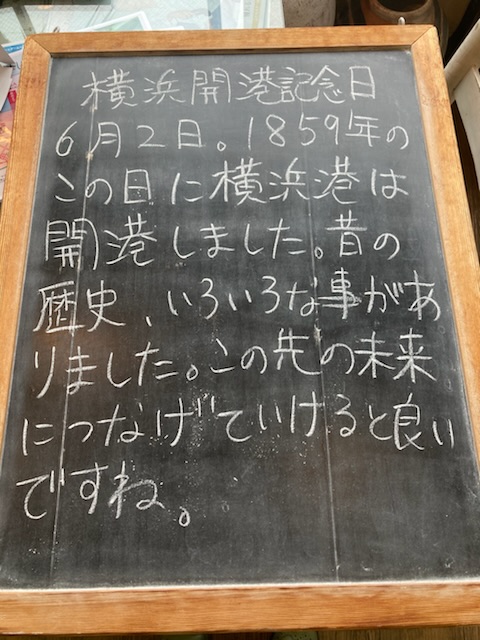 横浜開港記念日
6月2日。1859年の
この日に横浜港は
開港しました。昔の
歴史、いろいろな事があ
りました。この先の未来
につなげていけると良い
ですね。